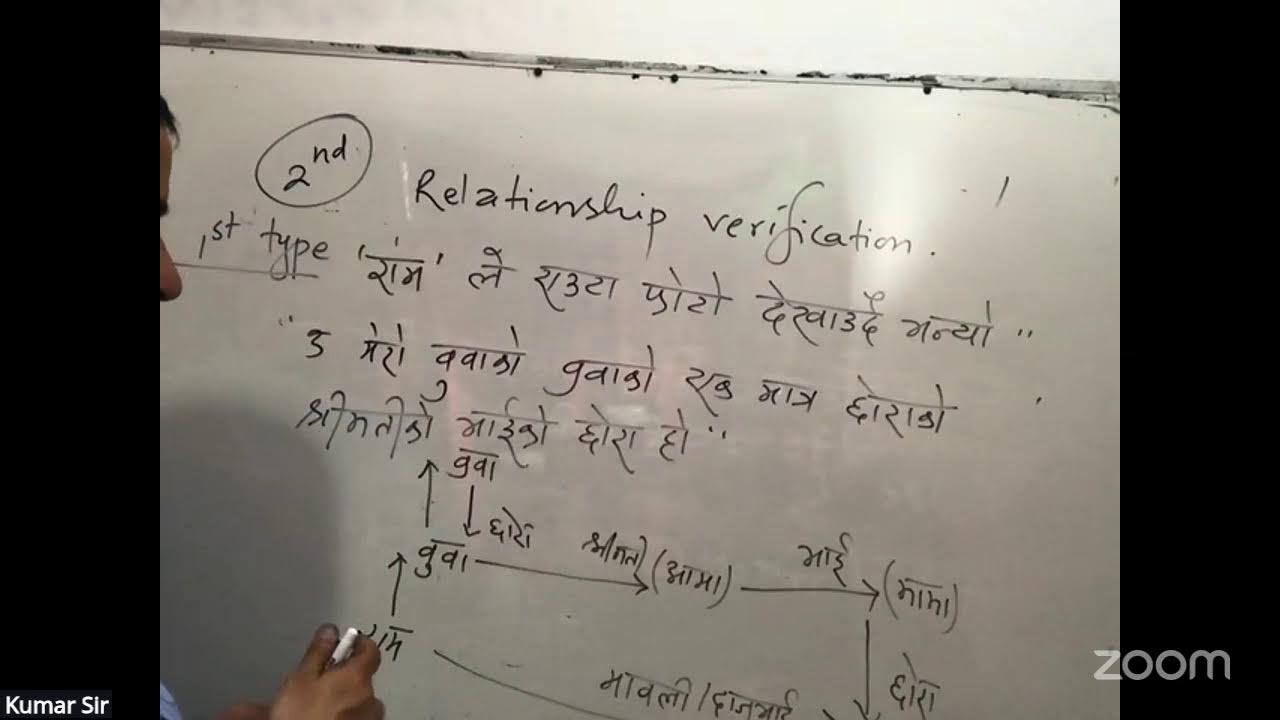 2nd
Relationship verification.
1st type 'राम' ले एउटा फोटो देखाउदै भन्यो "
उ मेरो बुवाको बुवाको एक मात्र छोराको
श्रीमतीको भाईको छोरा हो"
बुवा
छोरा
बुवा श्रीमती (आमा) भाई (मामा)
राम
मावली/दाजुभाई छोरा
zoom
Kumar Sir